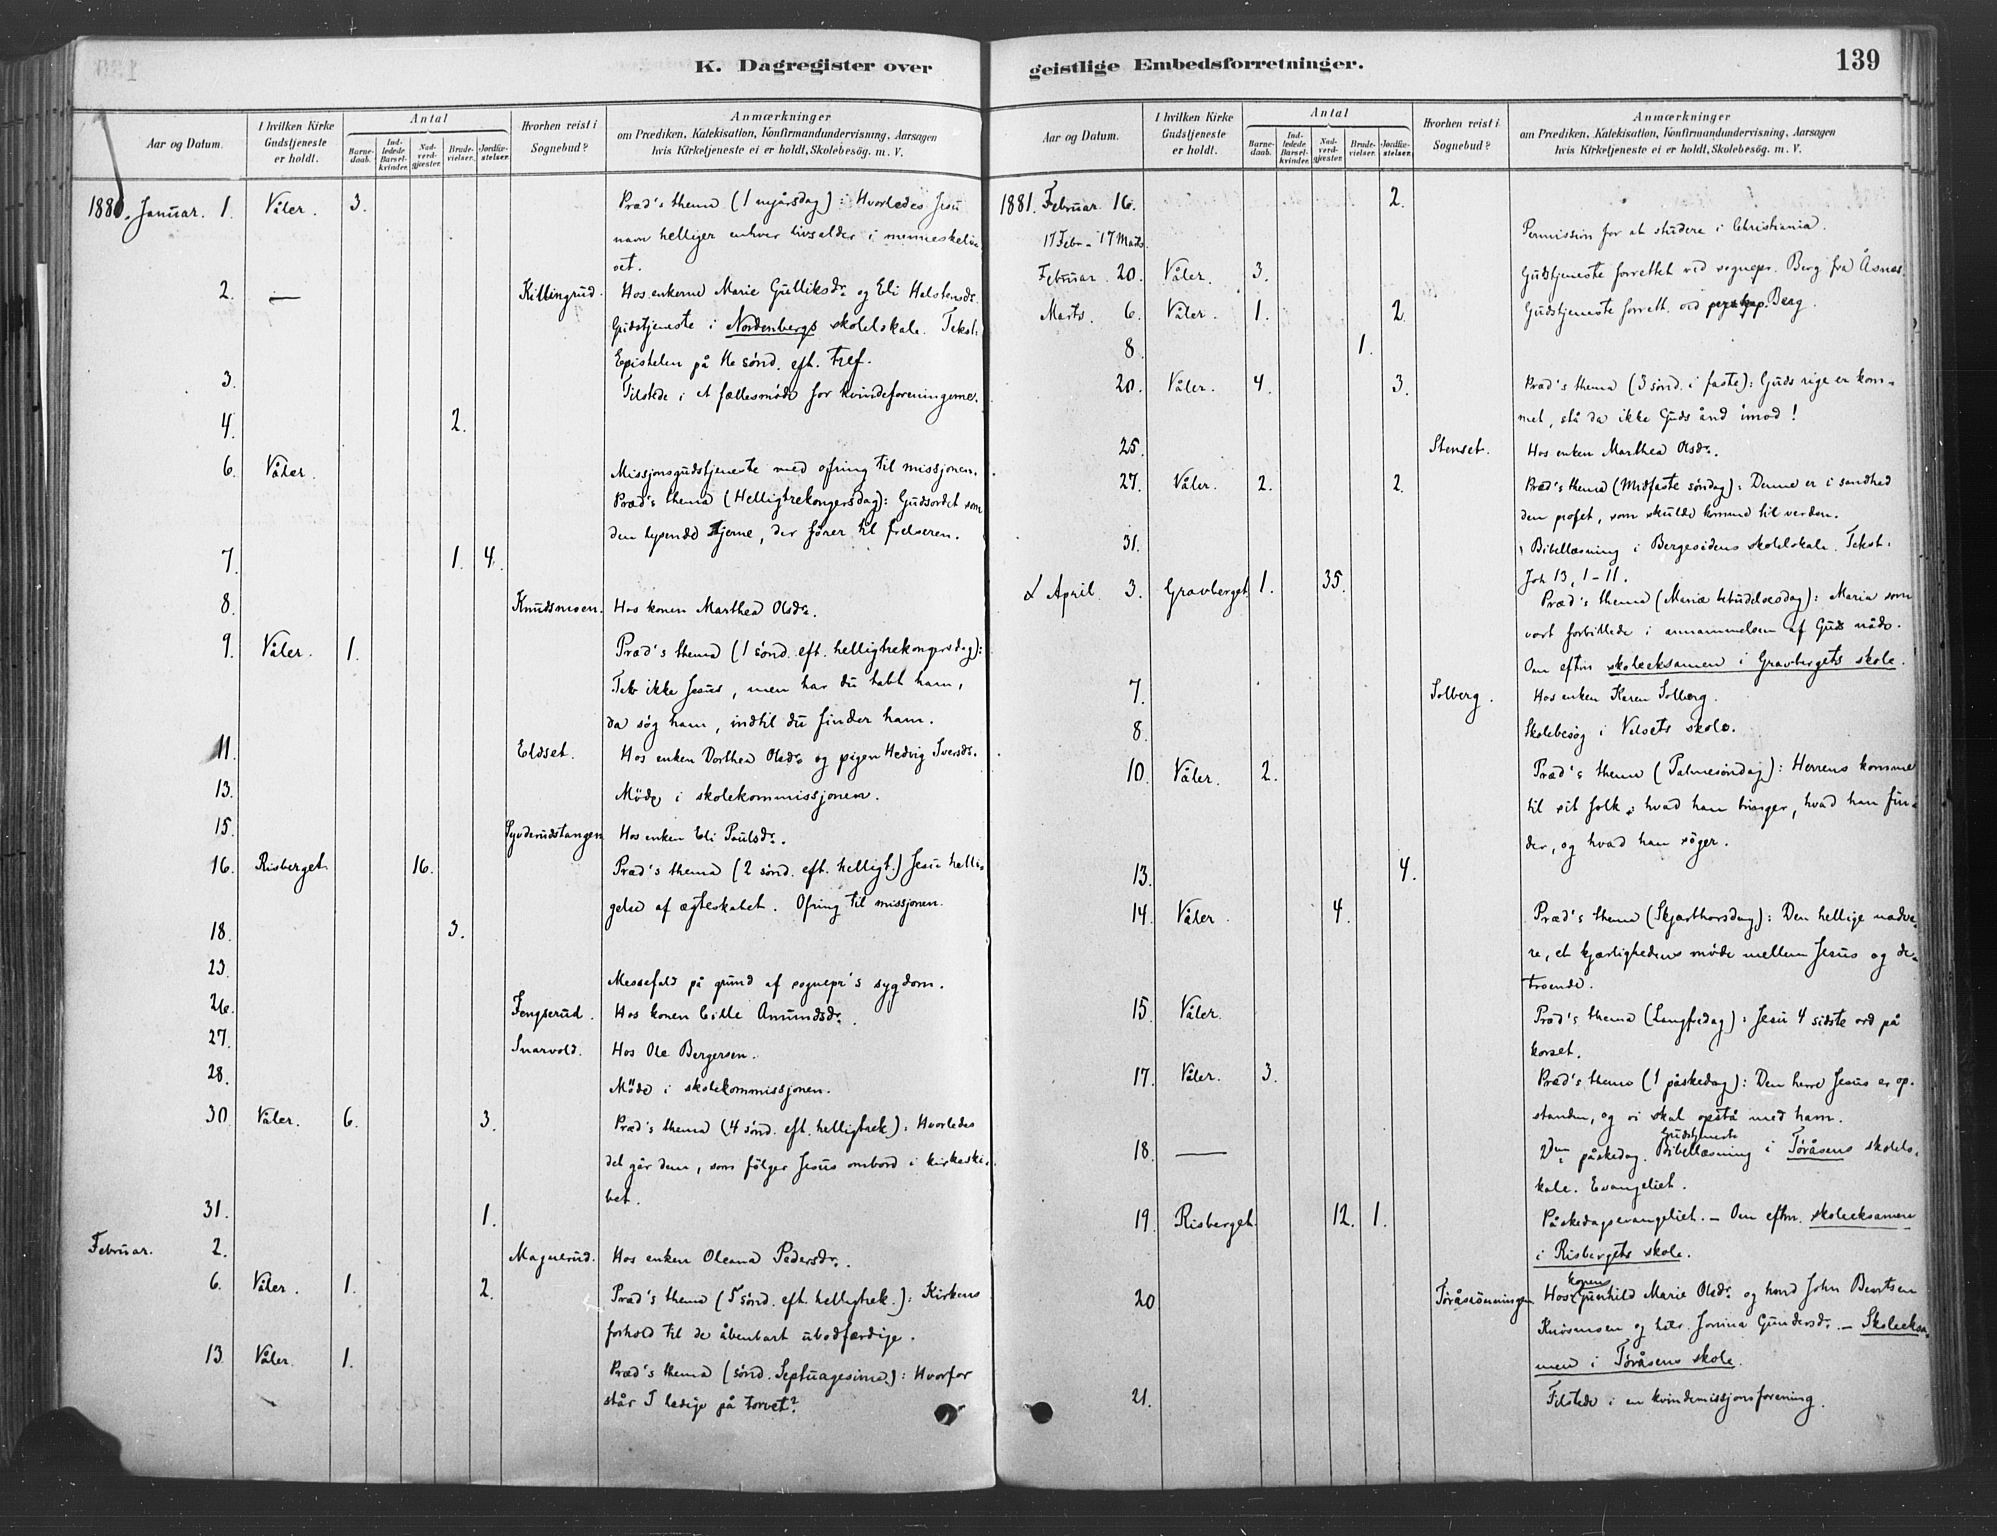 K. Dagregister over
Aar og Datum.
I hvilken Kirke Gudstjeneste er holdt.
Antal
Barne-daab.
Ind-ledede Barsel-kvinder.
Nad-verd-gjester.
Brude-vielser.
Jordfæ-stelser.
Hvorhen reist i Sognebud?
Anmærkninger
om Prædiken, Katekisation, Konfirmandundervisning, Aarsagen
hvis Kirketjeneste ei er holdt, Skolebesög. m. V.
1881. Januar. 1. Våler. 3. Præd's thema (1 nyårsdag): Hvorledes Jesu
navn helliger enhver livsalder i menneskeliv
et.
2. — Killingrud. Hos enkerne Marie Gulliksdr. og Eli Halstensdr.
Gudstjeneste i Nordenbergs skolelokale. Tekst:
Epistelen på 16 sönd. eft. Tref.
3. Tilstede i et fællesmöde for kvindeforeningerne.
4. 2.
6. Våler. Missjonsgudstjeneste med ofring til missjonen.
Præd's thema (Helligtrekongersdag): Gudsordet som
den lysende stjerne, der förer til frelseren.
7. 1. 4.
8. Knudsmoen. Hos konen Marthea Olsdr.
9. Våler. 1. Præd's thema (1 sönd. eft. helligtrekongersdag):
Tab ikke Jesus, men har du tabt ham,
da søg ham, indtil du finder ham.
11. Eldset. Hos enken Dorthea Olsdr. og pigen Hedvig Iversdr.
13. Möde i skolekommissjonen.
15. Syvderudstangen Hos enken Eli Paulsdr.
16. Risberget. 16. Præd's thema (2 sönd. eft. helligt.) Jesu helli-
gelse af ægteskabet. Ofring til missjonen.
18. 3.
23. Messefald på grund af sognepr's sygdom.
26. Fengserud. Hos konen Cille Amundsdr.
27. Snarvold. Hos Ole Bergersen.
28. Möde i skolekommissjonen.
30 Våler. 6. 3. Præd's thema (4 sönd. eft. helligtrek.): Hvorledes
det går dem, som fölger Jesus ombord i kirkeski-
bet.
31. 1.
Februar. 2. Magnerud. Hos enken Oleana Pedersdr.
6. Våler. 1. 2. Præd's thema (5 sönd. eft. helligtrek.): Kirkens
forhold til de åbenbart ubodfærdige.
13. Våler. 1. Præd's thema (sönd. Septuagesima): Hvorfor
står I ledige på torvet?
geistlige Embedsforretninger.
139
Aar og Datum.
I hvilken Kirke Gudstjeneste er holdt.
Antal
Barne-daab.
Ind-ledede Barsel-kvinder.
Nad-verd-gjester.
Brude-vielser.
Jordfæ-stelser.
Hvorhen reist i Sognebud?
Anmærkninger
om Prædiken, Katekisation, Konfirmandundervisning, Aarsagen
hvis Kirketjeneste ei er holdt, Skolebesög. m. V.
1881. Februar 16. 2.
17 Febr - 17 Marts. Permission for at studere i Christiania.
Februar 20. Våler. 3. Gudstjeneste forrettet ved sognepr. Berg fra Åsnes.
Marts. 6. Våler. 1. 2. Gudstjeneste forrett. ved Berg.
8. 1.
20. Våler. 4. 3. Præd's thema (3 sönd. i faste): Guds rige er kom-
met, stå da ikke Guds ånd imod!
25. Stenset. Hos enken Marthea Olsdr.
27. Våler. 2. 2. Præd's thema (Midfaste söndag): Denne er i sandhed
den profet, som skulde komme til verden.
31. Bibellæsning i Bergesidens skolelokale. Tekst:
Joh 13, 1-11.
April 3. Gravberget 1. 35. Præd's thema (Mariæ bebudelsesdag): Maria som
vort forbillede i annammelsen af Guds nåde.
Om eftm skoleeksamen i Gravbergets skole.
7. Solberg. Hos enken Karen Solberg.
8. Skolebesøg i Velsets skole.
10. Våler. 2. Præd's thema (Palmesöndag): Herrens komme
til sit folk: hvad han bringer, hvad han fin-
der, og hvad han söger.
13. 4.
14. Våler. 4. Præd's thema (Skjærthorsdag): Den hellige nadve-
re, et kjærlighedens möde mellem Jesus og de
troende.
15. Våler. Præd's thema (Langfredag): Jesu 4 sidste ord på
korset.
17. Våler. 3. Præd's thema (1 påskedag): Den herre Jesus er op-
standen, og vi skal opstå med ham.
18. — 2den påskedag. Gudstjeneste Bibellæsning i Töråsens skolelo-
kale. Evangeliet.
19. Risberget. 12. 1. Påskedagsevangeliet. - Om eftm. skoleeksamen
i Risbergets skole.
20 Töråsrönningen Hos konen Gunhild Marie Olsdr. og John Berntsen
og Jorina Gundersdr. - Skoleeksa-
men i Töråsens skole.
21. Tilstede i en kvindemissjonsforening.